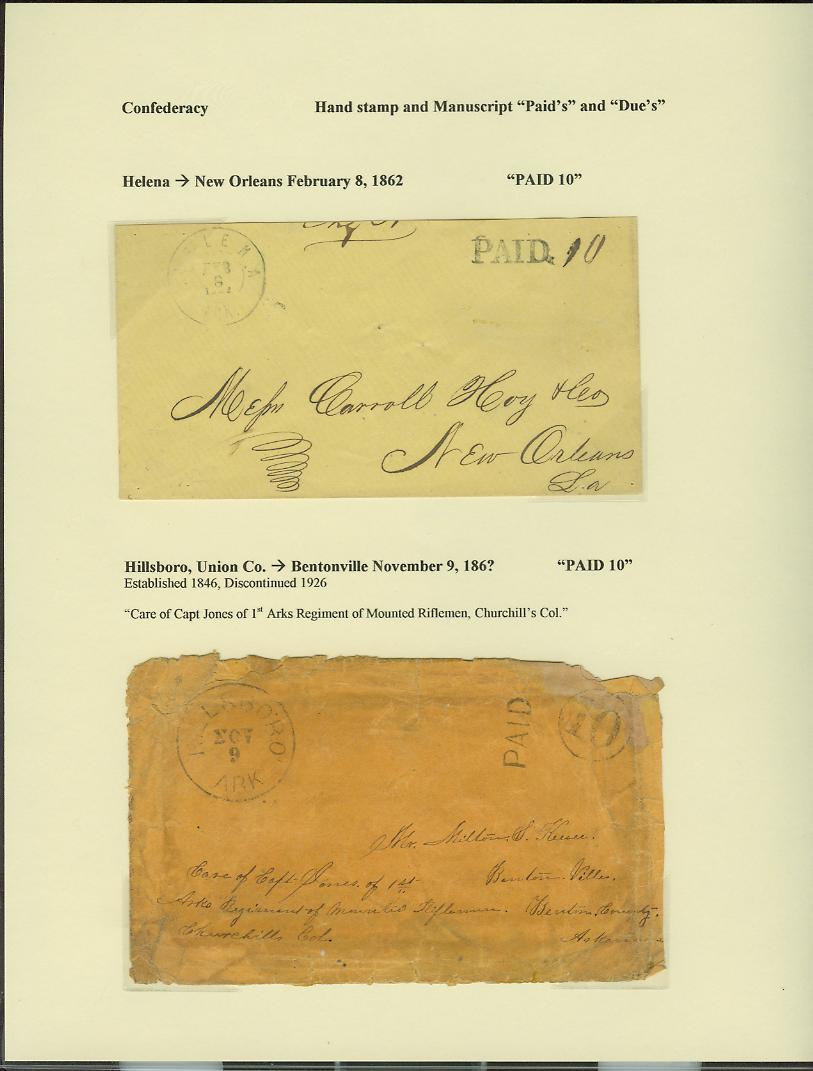 Confederacy Hand stamp and Manuscript “Paid's” and “Due's”
Helena → New Orleans February 8, 1862 “PAID 10”
HELENA
FEB
8
ARK.
PAID 10
Mess Carroll Hoy & Co
New Orleans
La
Hillsboro, Union Co. → Bentonville November 9, 186? “PAID 10”
Established 1846, Discontinued 1926
“Care of Capt Jones of 1st Arks Regiment of Mounted Riflemen, Churchill's Col.”
HILLSBORO
NOV
9
ARK
PAID 10
Mr. Milton S.
Care of Capt Jones of 1st Benton Ville.
Arks Regiment of Mounted Riflemen. Benton County.
Churchills Col. Arkansas